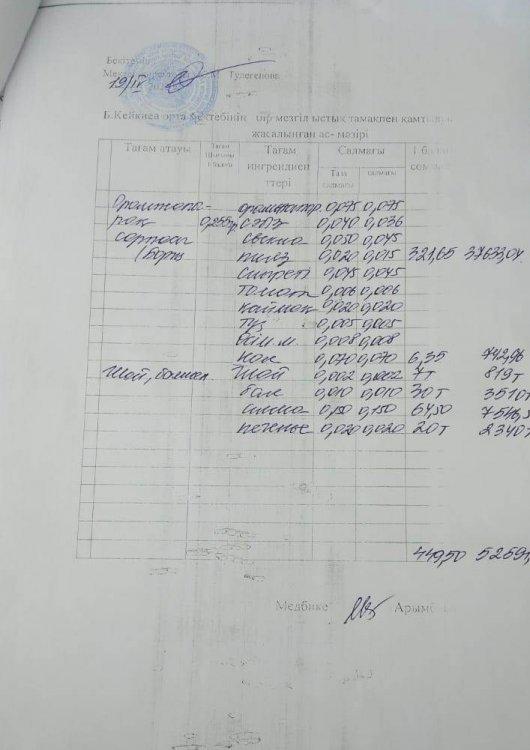 Бекітемін
Мек
19/IV 20
М. Тулегенова
Б.Кейкиса орта мектебінің бір мезгіл ыстық тамақпен қамтылған
жасалынған ас- мәзірі
Тағам атауы Тағам Тағам ингрендиенттері Салмағы 1 бала
Таза салмағы салмағы
0,075 0,075
0,255гр сәбіз 0,040 0,036
свекла 0,050 0,045
(борщ пияз 0,020 0,015 321,65 37633,04
0,045 0,045
томат 0,006 0,006
каймак 0,020 0,020
тұз 0,005 0,005
0,008 0,008
нан 0,070 0,070 6,35 742,96
Шай, шай 0,002 0,002 7т 819т
бал 0,010 0,010 30т 3510т
алма 0,150 0,150 64,50 7546,5
печенье 0,020 0,020 20т 2340т
449,50 52591,
Медбике Арымб